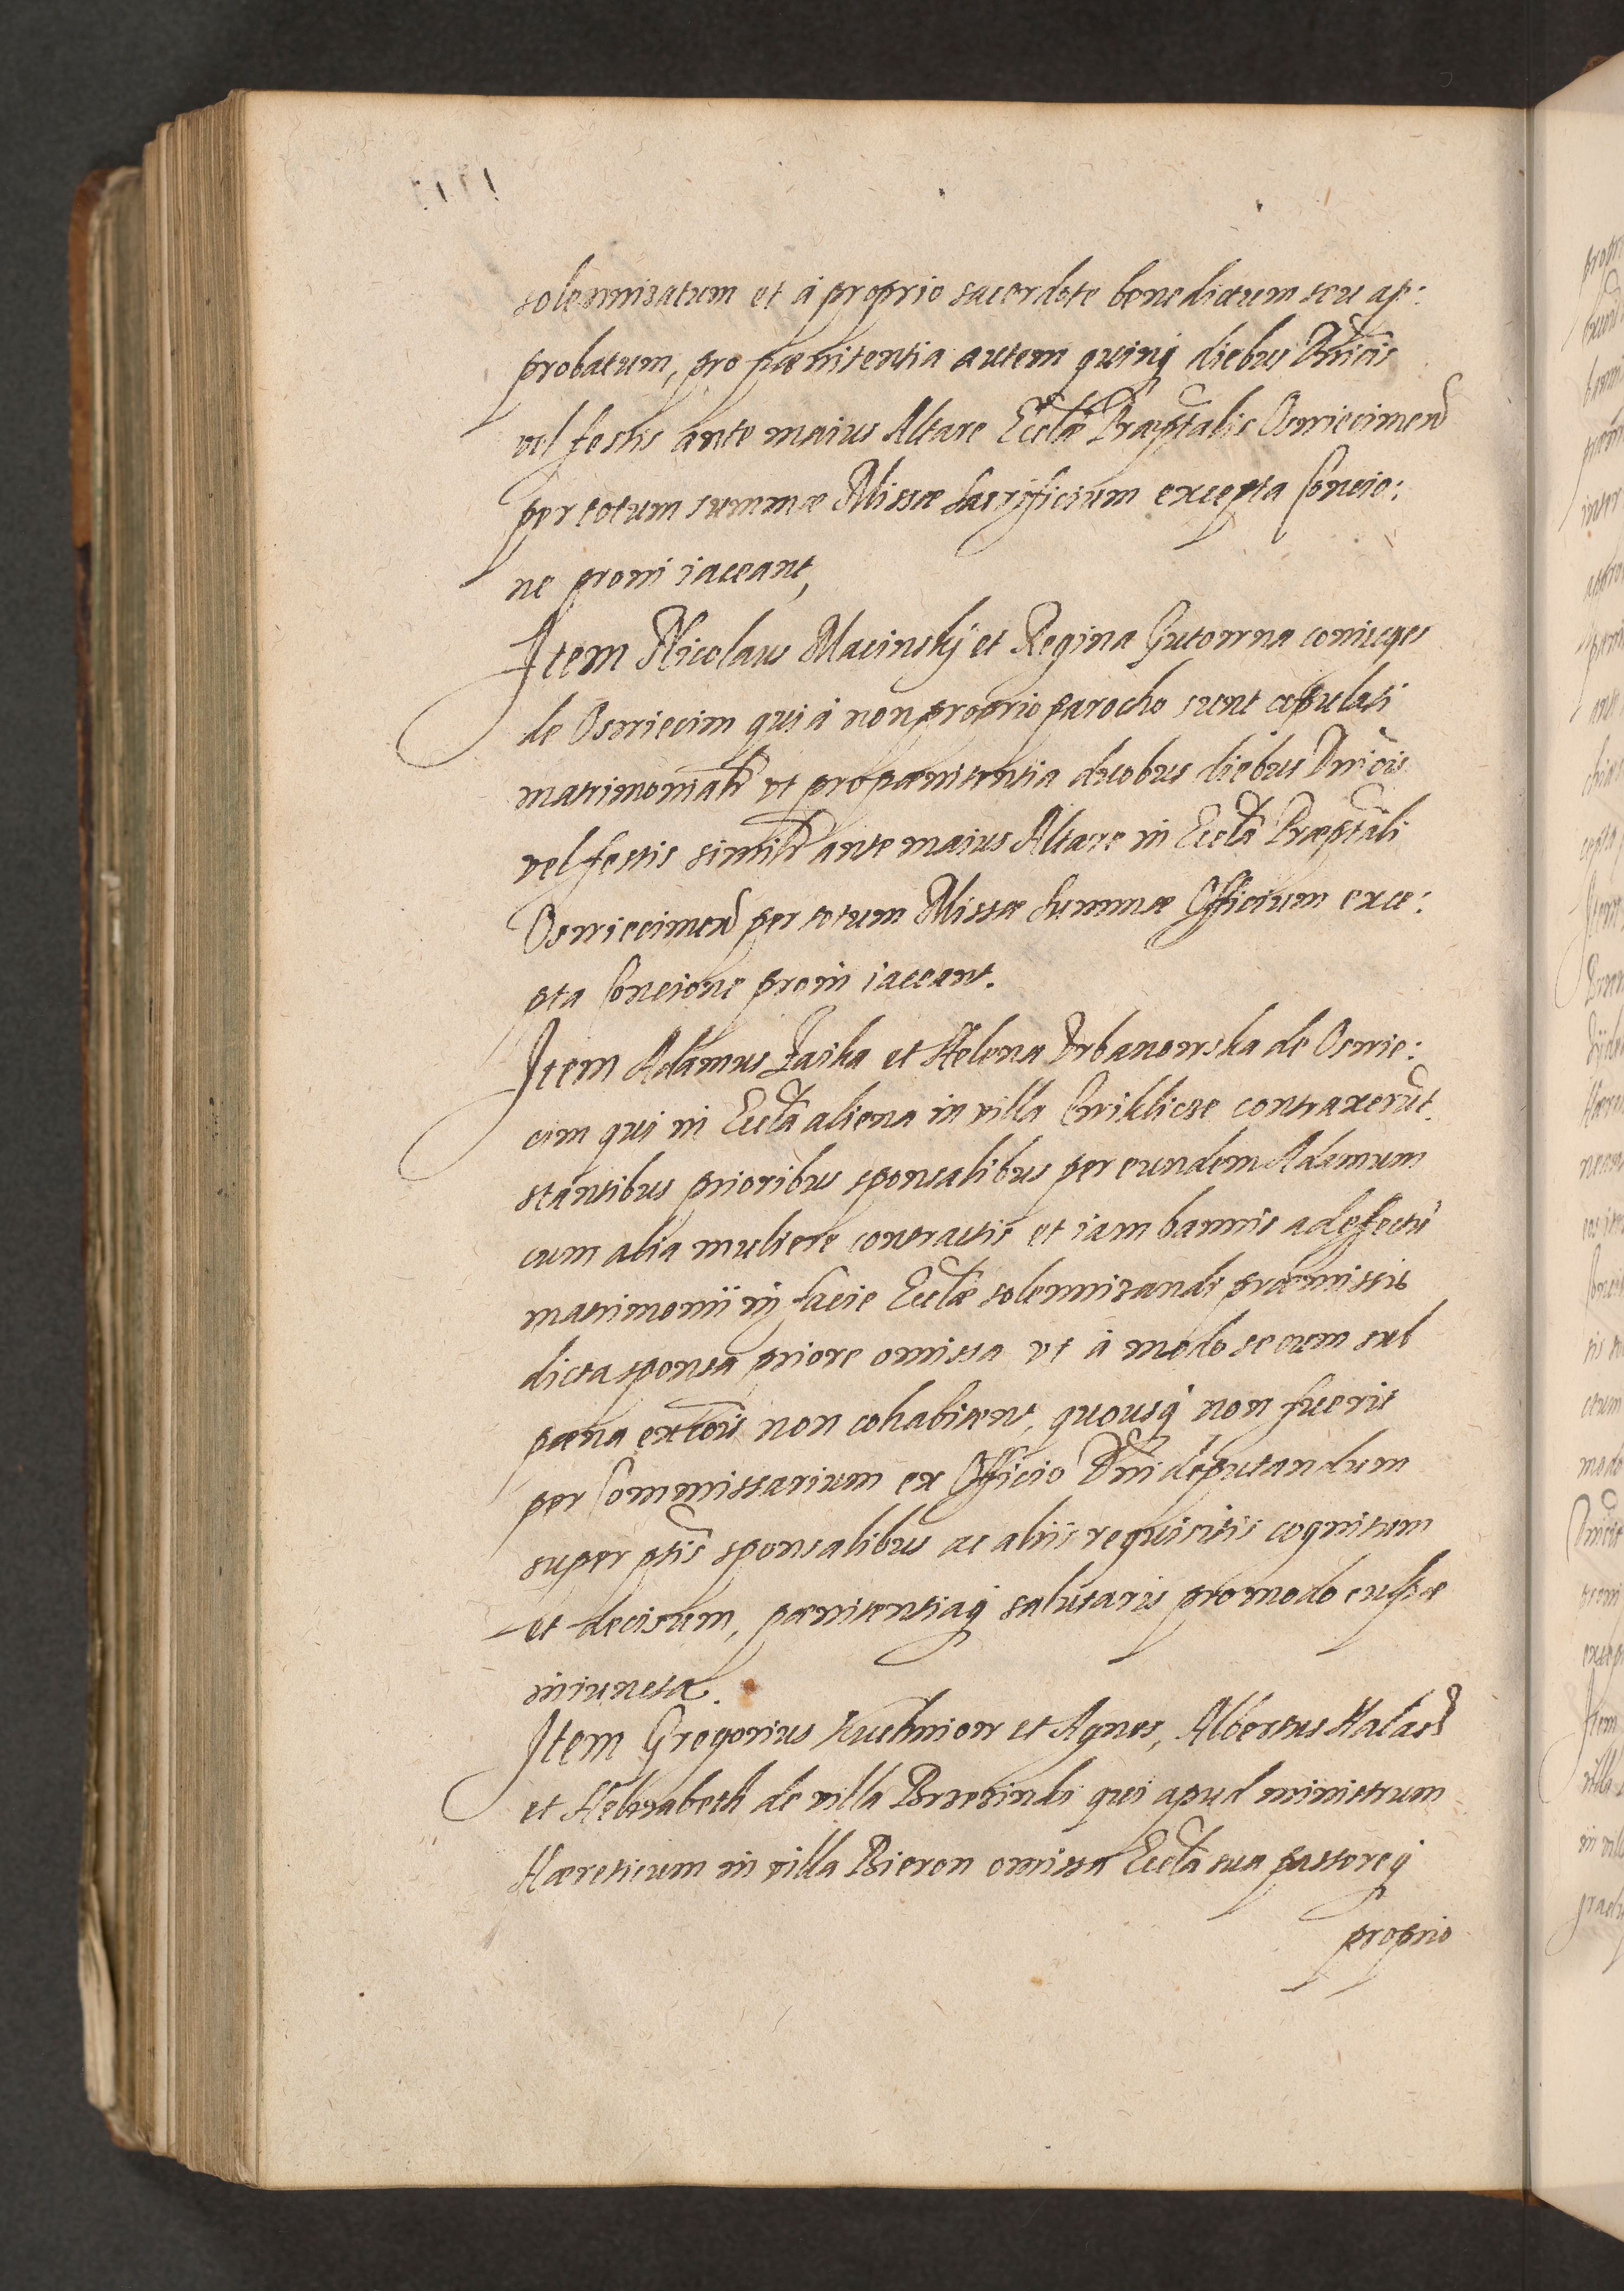 solemnizatum et à proprio sacerdote benedictum seu ap:
probatum, pro pænitentia autem quinq diebus Dnicis
vel festis ante maius Altare Ecclæ Præptalis Osvviecimen
per totum summæ Missæ Sacrificium excepta Concio:
ne proni iaceant,
Item Nicolaus Macinskj et Regina Gutovvna coniuges
de Osvviecim qui à non proprio parocho sunt copulati
matrimonialr vt pro pænitentia duobus diebus Dnicis
vel festis similr ante maius Altare in Eccla Præptali
Osvviecimen per totum Missæ Summæ Officium exce:
pta Concione proni iaceant.
Item Adamus Zaika et Helena Vrbanowska de Osvvie:
cim qui in Eccla aliena in villa Cwiklicze contraxerūt
stantibus prioribus sponsalibus per eundem Adamum
cum alia muliere contractis et iam bannis ad effectū
matrimonii in facie Ecclæ solemnizandi præmissis
dicta sponsa priore omissa vt à modo secum sub
pæna extcōis non cohabitent, quousq non fuerit
per Commissarium ex Officio Dni deputandum
super ptis sponsalibus ac aliis requisitis cognitum
et decisum, pænitentiaq salutaris pro modo culpæ
iniuncta.
Item Gregorius Kuchniow et Agnes, Albertus Halas
et Helizabeth de villa Brzezinki qui apud ministrum
Hæreticum in villa Bieron omissa Eccla sua pastoreq
proprio